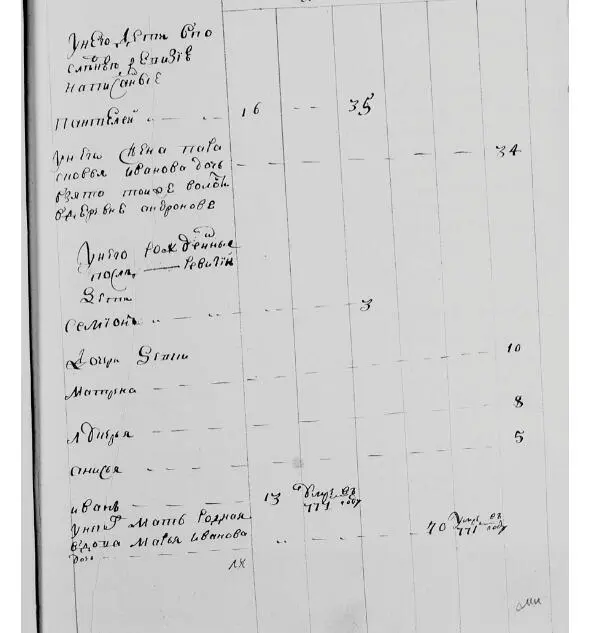 У него дети в по
следнею ревизiю
написанные
Пантелей 16 35
у него жена Пара
сковья Иванова дочь 34
взята тоиже волости
в деревне Андронове
У него рожденные
после ревизiи
дети
Семион 3
дочери 10
Матрена
8
Дарья
5
Анисья
Иван 13 Умре въ 771 году
у них мать родная
вдова Марья Иванова 70 Умре въ 771 году
дочь